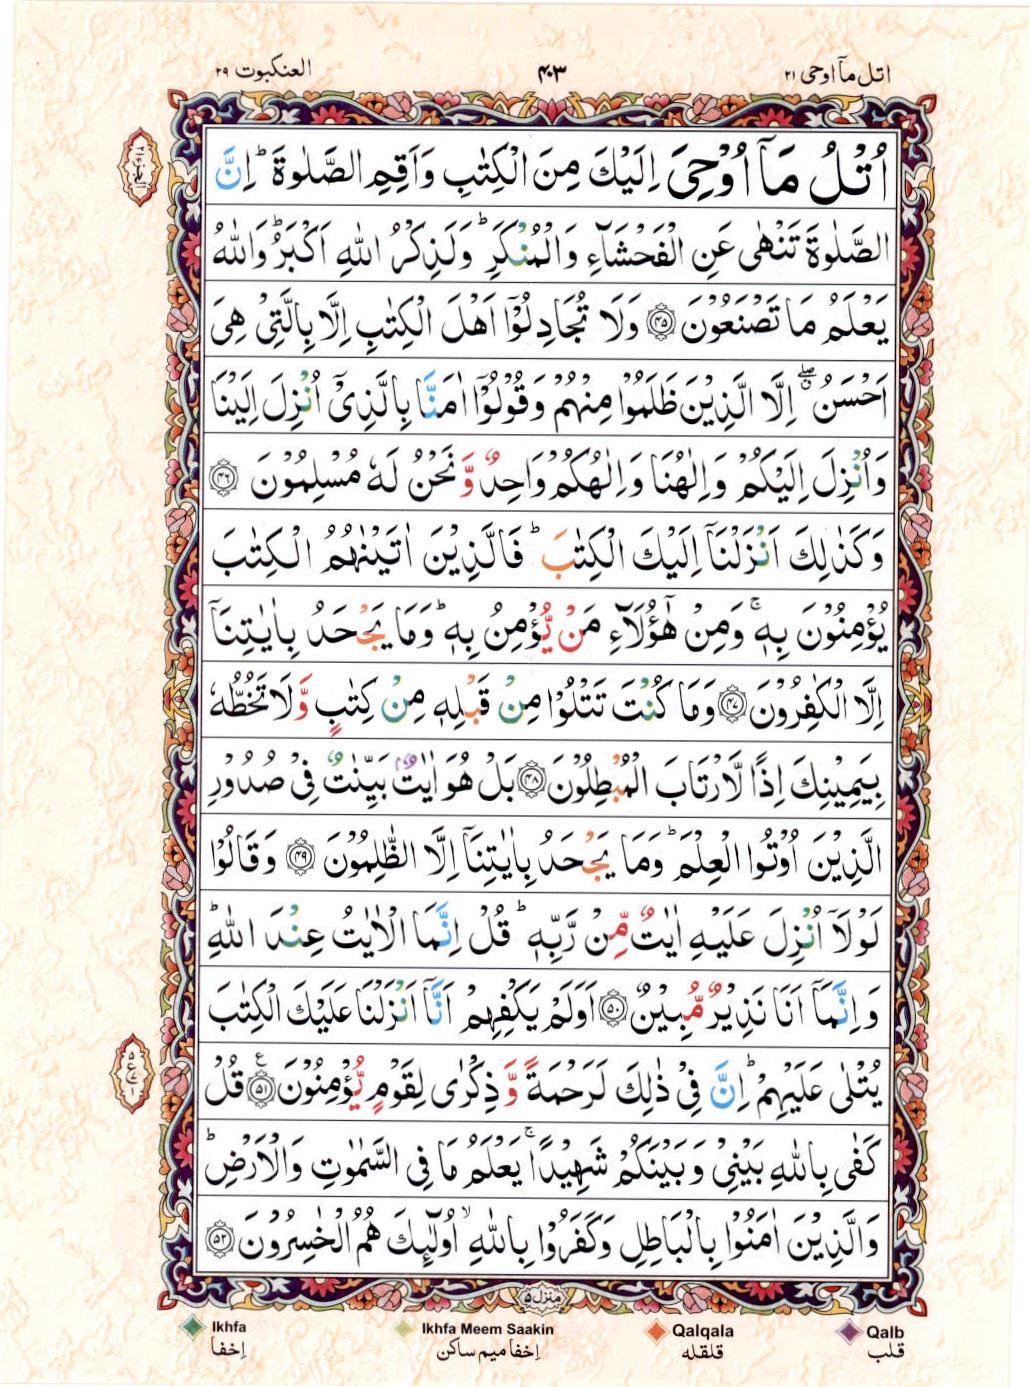 اتل مآ اوحی ۲۱
۴۰۳
العنكبوت ۲۹
اُتْلُ مَاۤ اُوْحِیَ اِلَیْكَ مِنَ الْكِتٰبِ وَاَقِمِ الصَّلٰوةَ ؕ اِنَّ
الصَّلٰوةَ تَنْهٰی عَنِ الْفَحْشَآءِ وَالْمُنْكَرِ ؕ وَلَذِكْرُ اللّٰهِ اَكْبَرُ ؕ وَاللّٰهُ
یَعْلَمُ مَا تَصْنَعُوْنَ ﴿۴۵﴾ وَلَا تُجَادِلُوْۤا اَهْلَ الْكِتٰبِ اِلَّا بِالَّتِیْ هِیَ
اَحْسَنُ ۖۗ اِلَّا الَّذِیْنَ ظَلَمُوْا مِنْهُمْ وَقُوْلُوْۤا اٰمَنَّا بِالَّذِیْۤ اُنْزِلَ اِلَیْنَا
وَاُنْزِلَ اِلَیْكُمْ وَاِلٰهُنَا وَاِلٰهُكُمْ وَاحِدٌ وَّنَحْنُ لَهٗ مُسْلِمُوْنَ ﴿۴۶﴾
وَكَذٰلِكَ اَنْزَلْنَاۤ اِلَیْكَ الْكِتٰبَ ؕ فَالَّذِیْنَ اٰتَیْنٰهُمُ الْكِتٰبَ
یُؤْمِنُوْنَ بِهٖ ۚ وَمِنْ هٰۤؤُلَآءِ مَنْ یُّؤْمِنُ بِهٖ ؕ وَمَا یَجْحَدُ بِاٰیٰتِنَاۤ
اِلَّا الْكٰفِرُوْنَ ﴿۴۷﴾ وَمَا كُنْتَ تَتْلُوْا مِنْ قَبْلِهٖ مِنْ كِتٰبٍ وَّلَا تَخُطُّهٗ
بِیَمِیْنِكَ اِذًا لَّارْتَابَ الْمُبْطِلُوْنَ ﴿۴۸﴾ بَلْ هُوَ اٰیٰتٌۢ بَیِّنٰتٌ فِیْ صُدُوْرِ
الَّذِیْنَ اُوْتُوا الْعِلْمَ ؕ وَمَا یَجْحَدُ بِاٰیٰتِنَاۤ اِلَّا الظّٰلِمُوْنَ ﴿۴۹﴾ وَقَالُوْا
لَوْلَاۤ اُنْزِلَ عَلَیْهِ اٰیٰتٌ مِّنْ رَّبِّهٖ ؕ قُلْ اِنَّمَا الْاٰیٰتُ عِنْدَ اللّٰهِ ؕ
وَاِنَّمَاۤ اَنَا نَذِیْرٌ مُّبِیْنٌ ﴿۵۰﴾ اَوَلَمْ یَكْفِهِمْ اَنَّاۤ اَنْزَلْنَا عَلَیْكَ الْكِتٰبَ
یُتْلٰی عَلَیْهِمْ ؕ اِنَّ فِیْ ذٰلِكَ لَرَحْمَةً وَّذِكْرٰی لِقَوْمٍ یُّؤْمِنُوْنَ ﴿۵۱﴾ۧ قُلْ
كَفٰی بِاللّٰهِ بَیْنِیْ وَبَیْنَكُمْ شَهِیْدًا ۚ یَعْلَمُ مَا فِی السَّمٰوٰتِ وَالْاَرْضِ ؕ
وَالَّذِیْنَ اٰمَنُوْا بِالْبَاطِلِ وَكَفَرُوْا بِاللّٰهِ ۙ اُولٰٓئِكَ هُمُ الْخٰسِرُوْنَ ﴿۵۲﴾
منزل ۵
Ikhfa
Ikhfa Meem Saakin
Qalqala
Qalb
اِخفا
اِخفا میم ساکن
قلقله
قلب